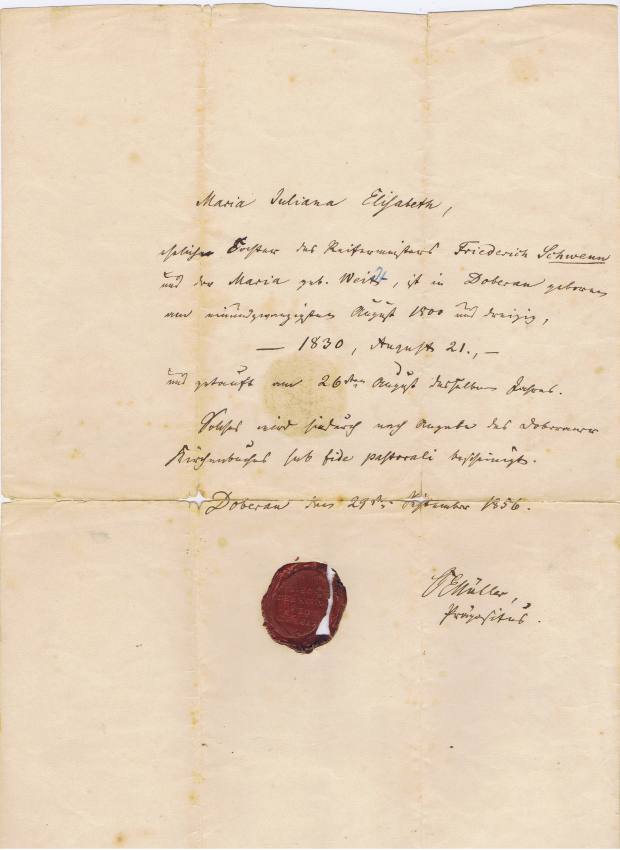 Maria Juliana Elisabeth,
eheliche Tochter des Reifermeisters Friederich Schwenn
und der Maria geb. Weidt, ist in Doberan geboren
am einundzwanzigsten August 1800 und dreizig,
— 1830, August 21., —
und getauft am 26sten August desselben Jahres.
Solches wird hiedurch nach Angabe des Doberaner
Kirchenbuches sub fide pastorali bescheinigt.
Doberan den 29st. September 1856.
Müller,
Präpositus.